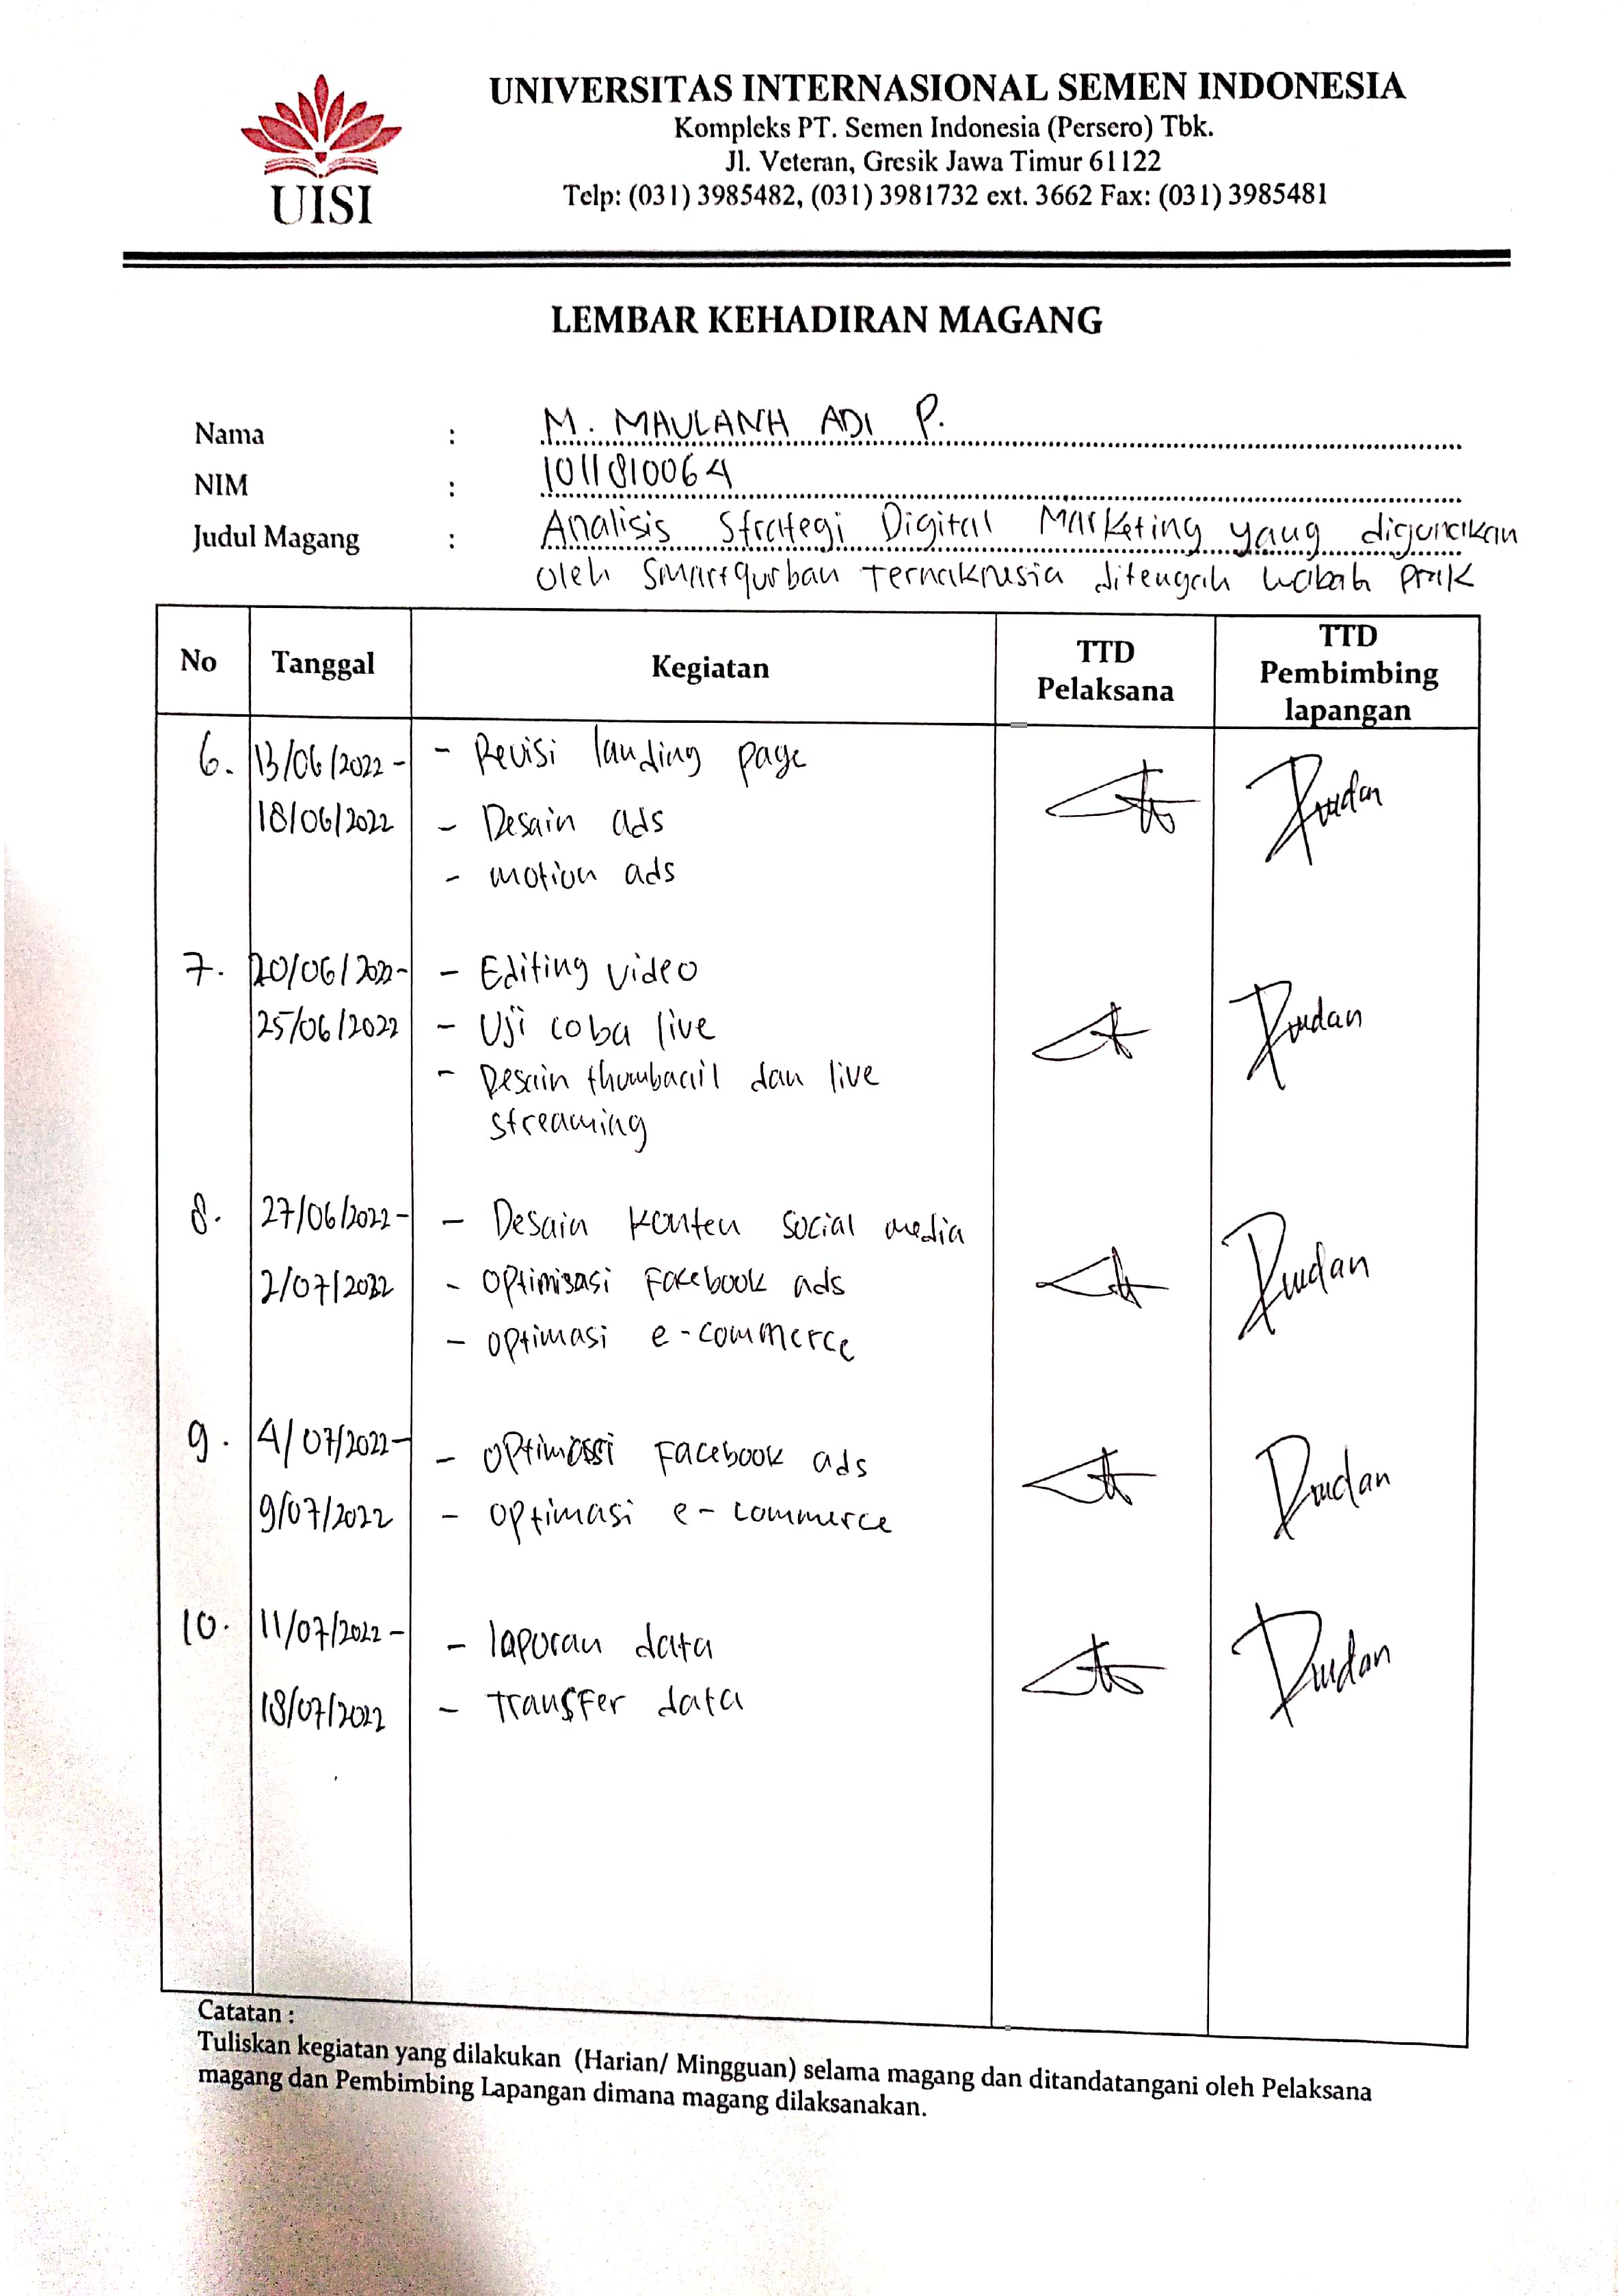 UISI
UNIVERSITAS INTERNASIONAL SEMEN INDONESIA
Kompleks PT. Semen Indonesia (Persero) Tbk.
Jl. Veteran, Gresik Jawa Timur 61122
Telp: (031) 3985482, (031) 3981732 ext. 3662 Fax: (031) 3985481
LEMBAR KEHADIRAN MAGANG
Nama : M. MAULANA ADI P.
NIM : 1011810064
Judul Magang : Analisis Strategi Digital Marketing yang digunakan
oleh Smartqurban Ternaknesia ditengah wabah PMK
No Tanggal Kegiatan TTD Pelaksana TTD Pembimbing lapangan
6. 13/06/2022 - - Revisi landing page
18/06/2022 - Desain ads
- motion ads
7. 20/06/2022 - - Editing video
25/06/2022 - Uji coba live
- Desain thumbnail dan live
streaming
8. 27/06/2022 - - Desain konten social media
2/07/2022 - optimisasi Facebook ads
- optimasi e-commerce
9. 4/07/2022 - - optimasi Facebook ads
9/07/2022 - optimasi e-commerce
10. 11/07/2022 - - laporan data
18/07/2022 - Transfer data
Catatan :
Tuliskan kegiatan yang dilakukan (Harian/ Mingguan) selama magang dan ditandatangani oleh Pelaksana
magang dan Pembimbing Lapangan dimana magang dilaksanakan.